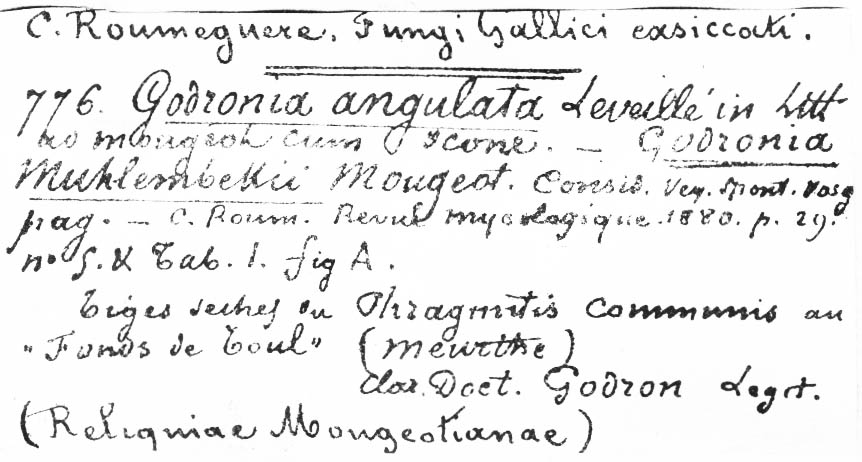 C. Roumeguere. Fungi Gallici exsiccati.
776. Godronia angulata Leveillé in Litt
ad mougeot cum Icone. — Godronia
Muhlembekii Mougeot. Consid. Veg. spont. Vosg
pag. — C. Roum. Revue mycologique. 1880. p. 29.
nº 5. & Tab. 1. fig A.
Tiges seches du Phragmitis communis au
"Fonds de Toul" (Meurthe)
clar. Doct. Godron Legit.
(Reliquiae Mougeotianae)